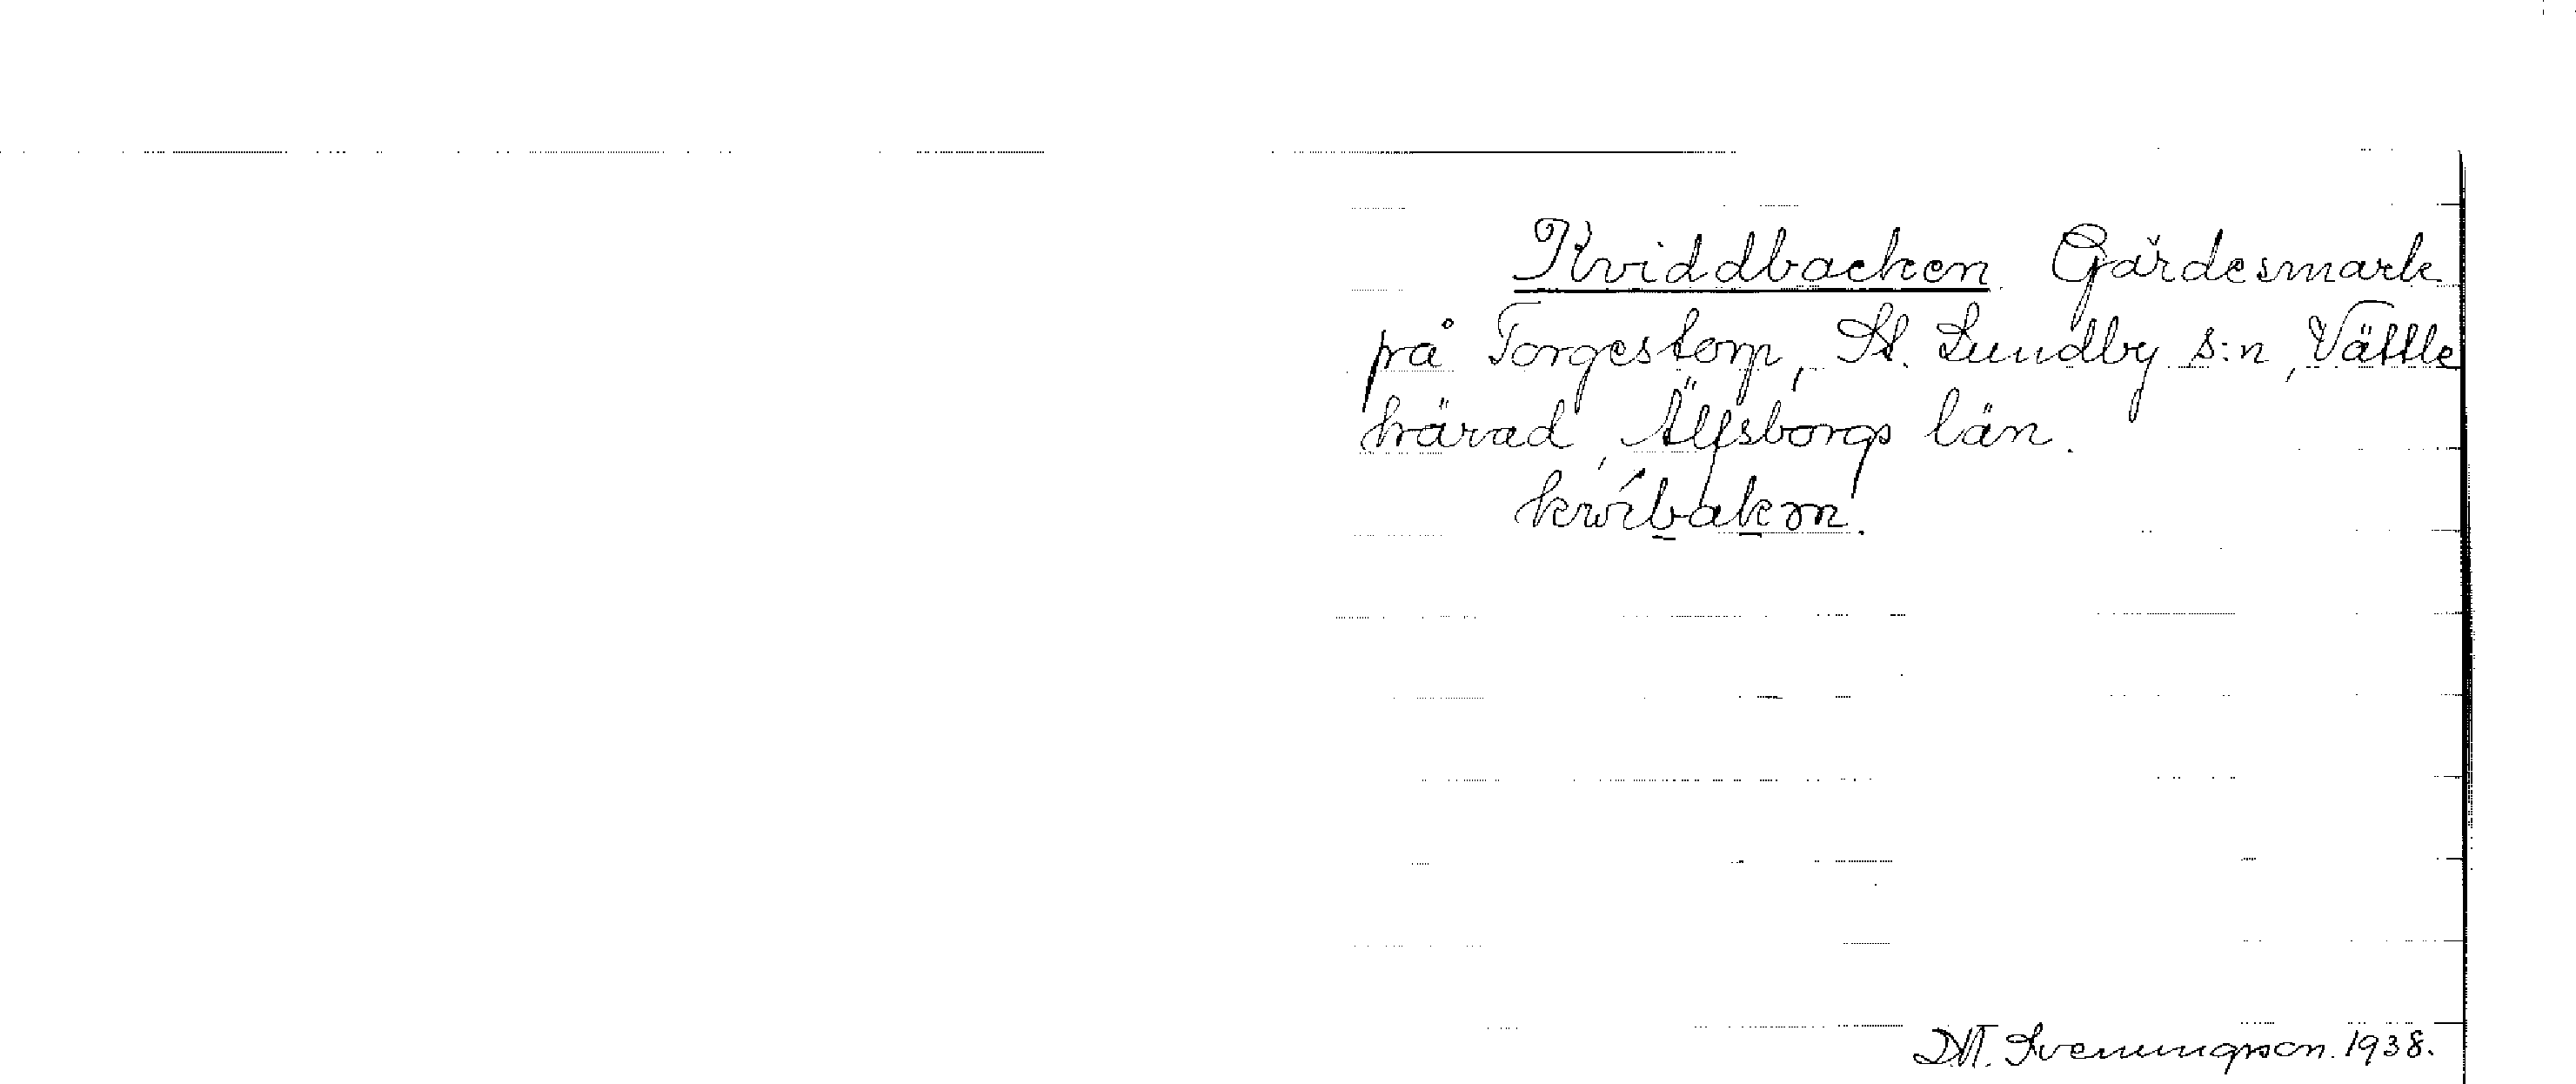 Kviddbacken Gärdesmark
på Torgestorp, St. Lundby s:n, Vättle
härad, Älfsborgs län.
kwíbakən.
D.N. Svenningson. 1938.